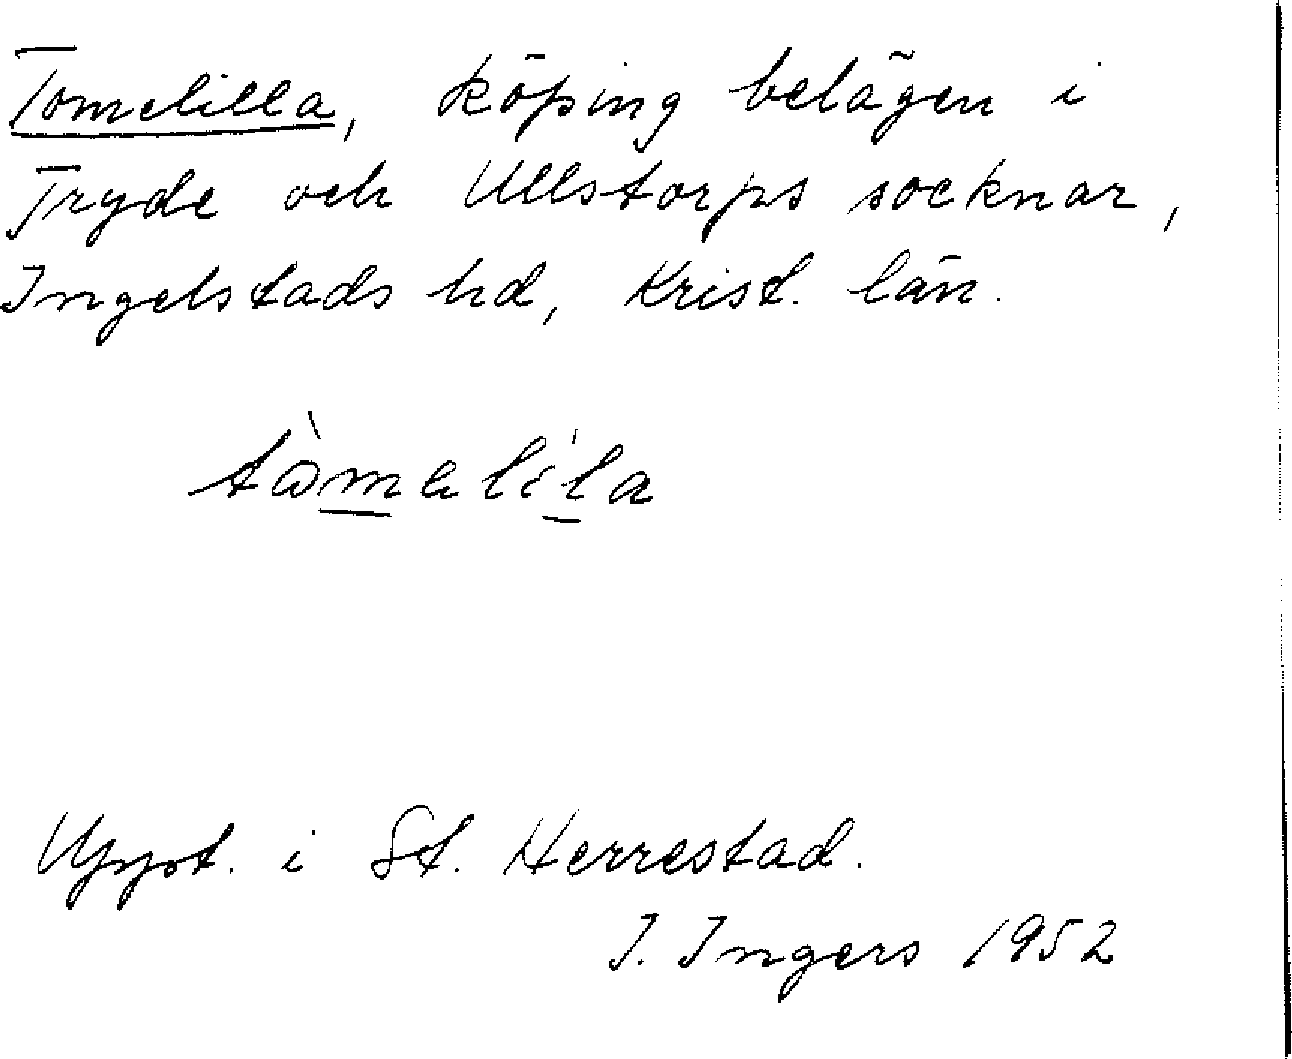 Tomelilla, köping belägen i
Tryde och Ullstorps socknar,
Ingelstads hd, Krist. län.
Uppt. i St. Herrestad.
I. Ingers 1952